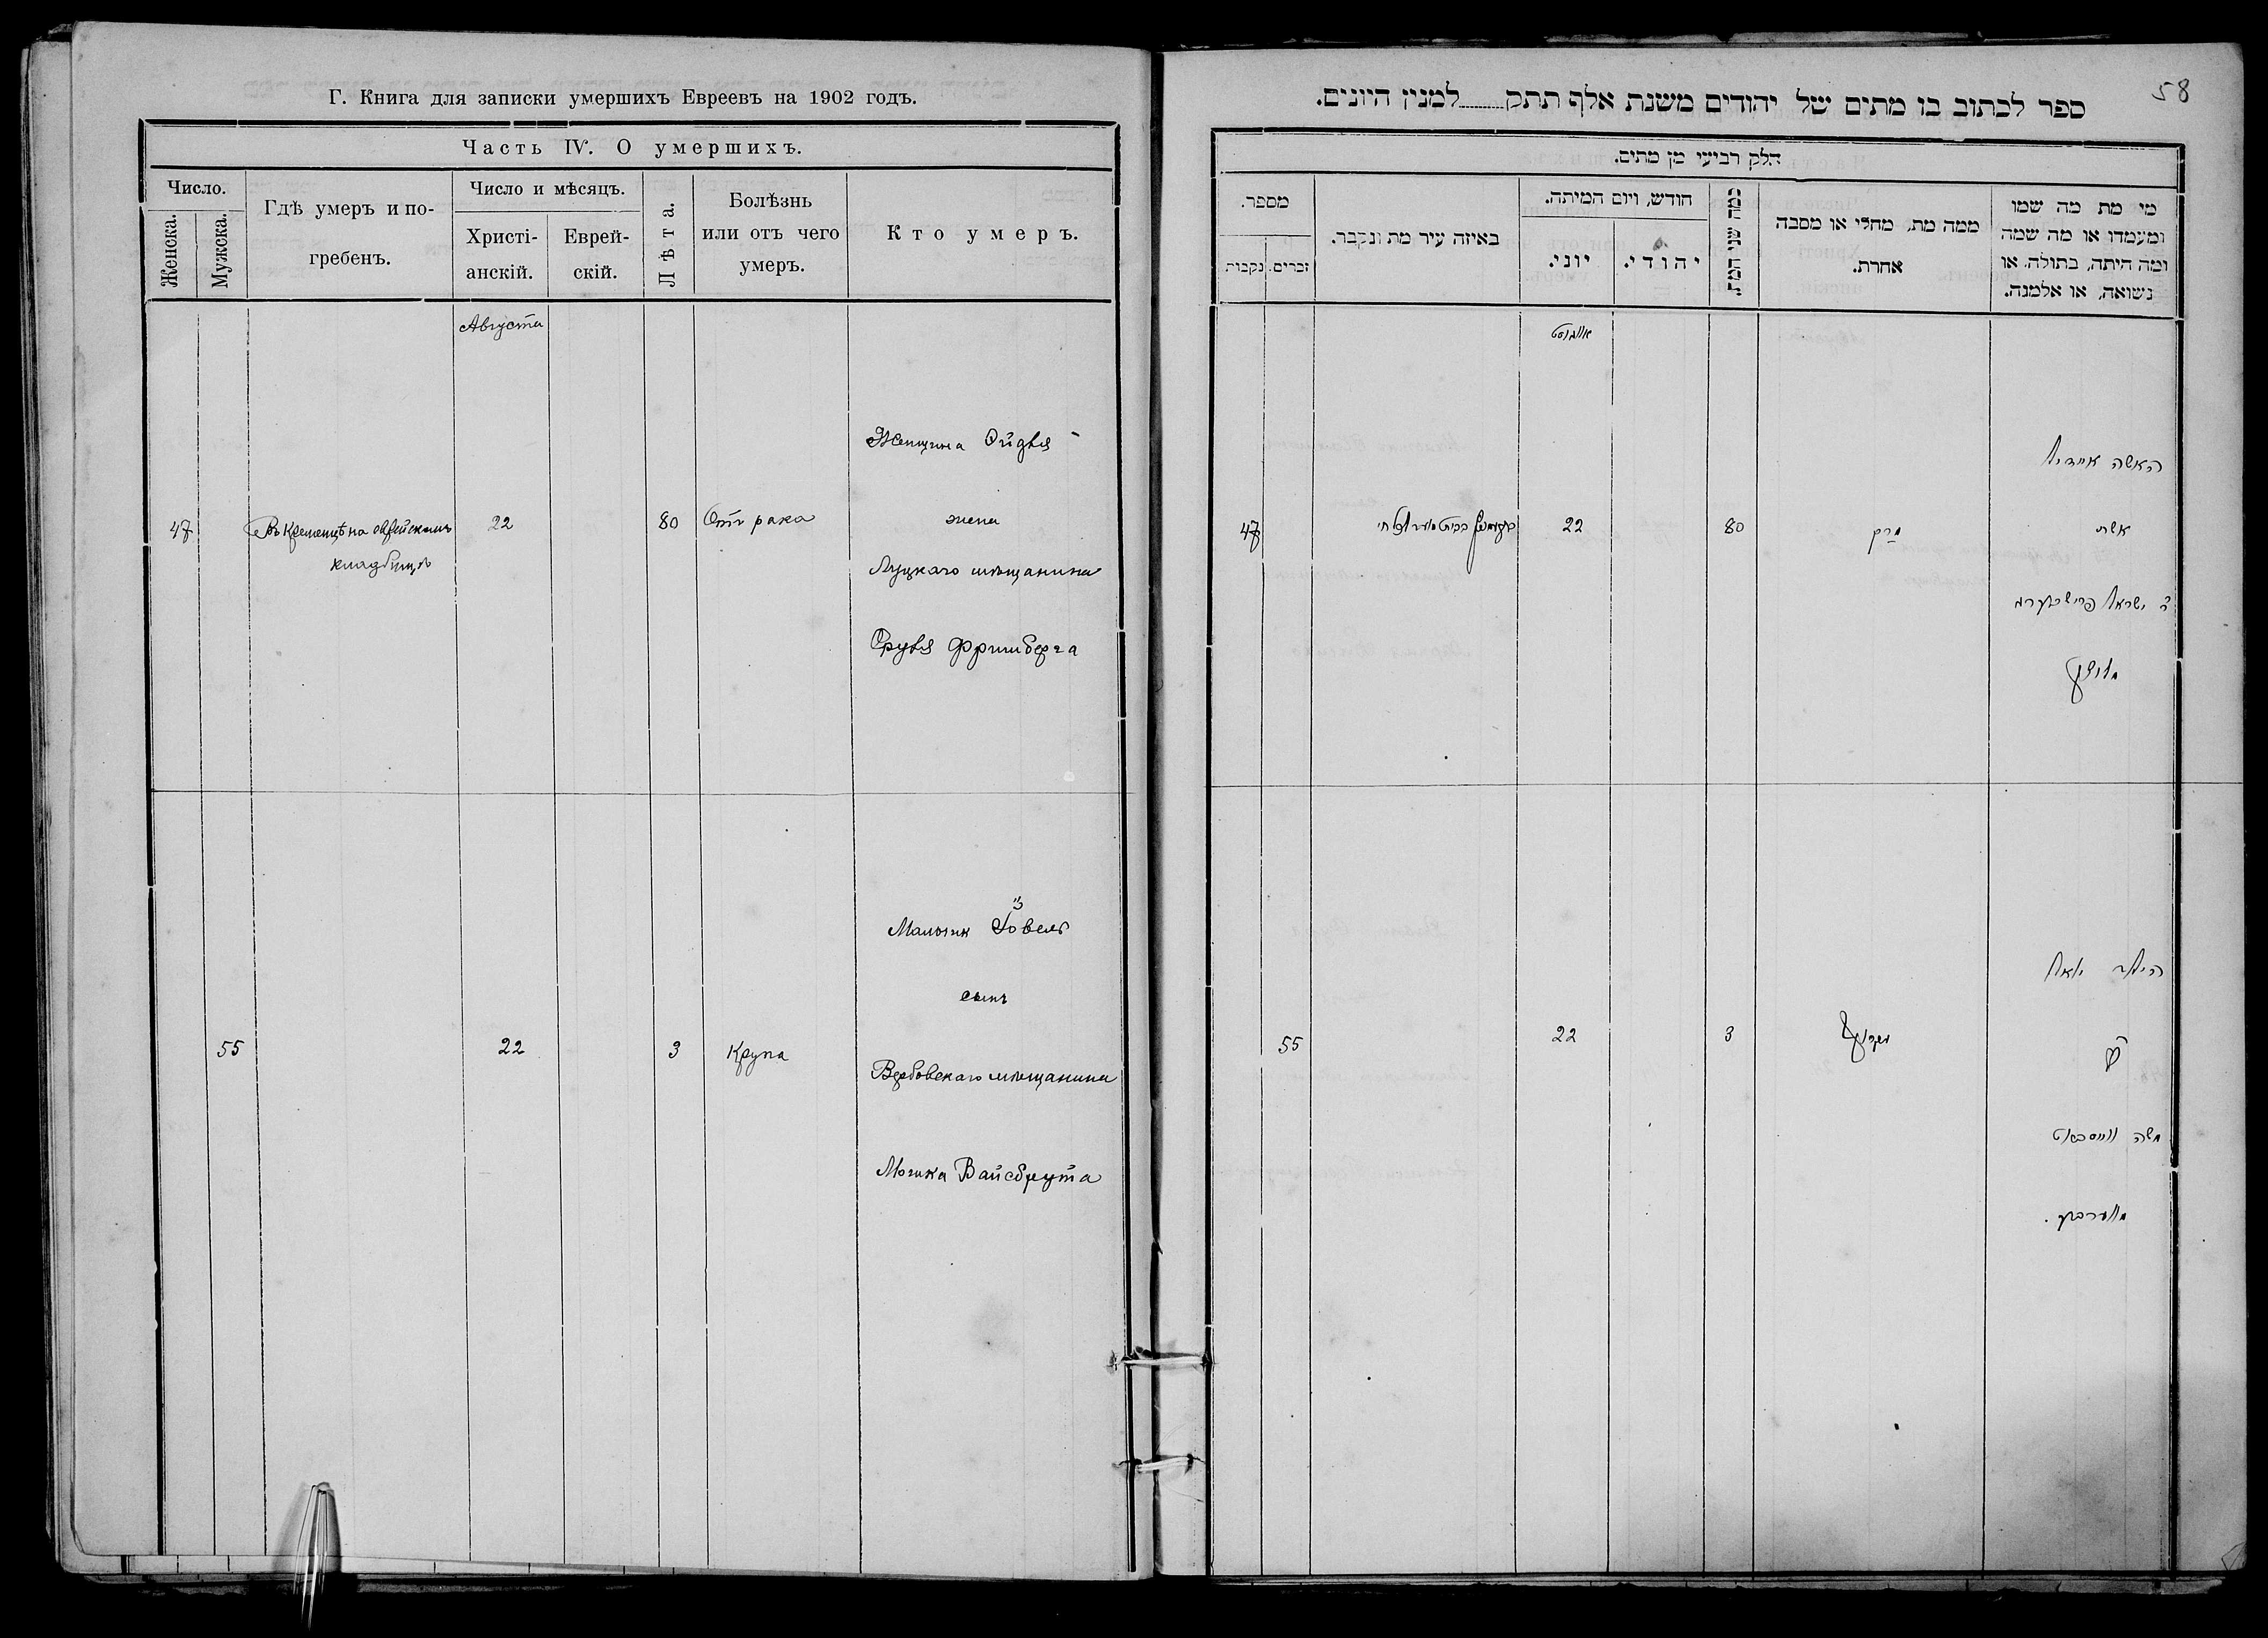 Г. Книга для записки умершихъ Евреевъ на 1902 годъ.
Часть IV. О умершихъ.
Число.
Женска.
Мужска.
Гдѣ умеръ и по-
гребенъ.
Число и мѣсяцъ.
Христі-
анскій.
Еврей-
скій.
Лѣта.
Болѣзнь
или отъ чего
умеръ.
Кто умеръ.
Августа
Женщина Ойдля
47
Въ Кременцѣ на еврейскомъ
кладбищѣ
22
80
Отъ рака
жена
Луцкаго мѣщанина
Фришберга
Мальчик
сынъ
55
22
3
Крупа
Вербовскаго мѣщанина
Вайсбрута
58
ספר לכתוב בו מתים של יהודים משנת אלף תתק למנין היונים.
חלק רביעי מן מתים.
מי מת מה שמו
ומעמדו או מה שמה
ומה היתה, בתולה או
נשואה, או אלמנה.
ממה מת, מחלי או מסבה
אחרת.
כמה שני המת.
חודש, ויום המיתה.
יהודי.
יוני.
באיזה עיר מת ונקבר.
מספר.
זכרים.
נקבות
אווגוסט
האשה איידיל
אשת
80
22
47
ר' ישראל
הילד
3
22
55
משה